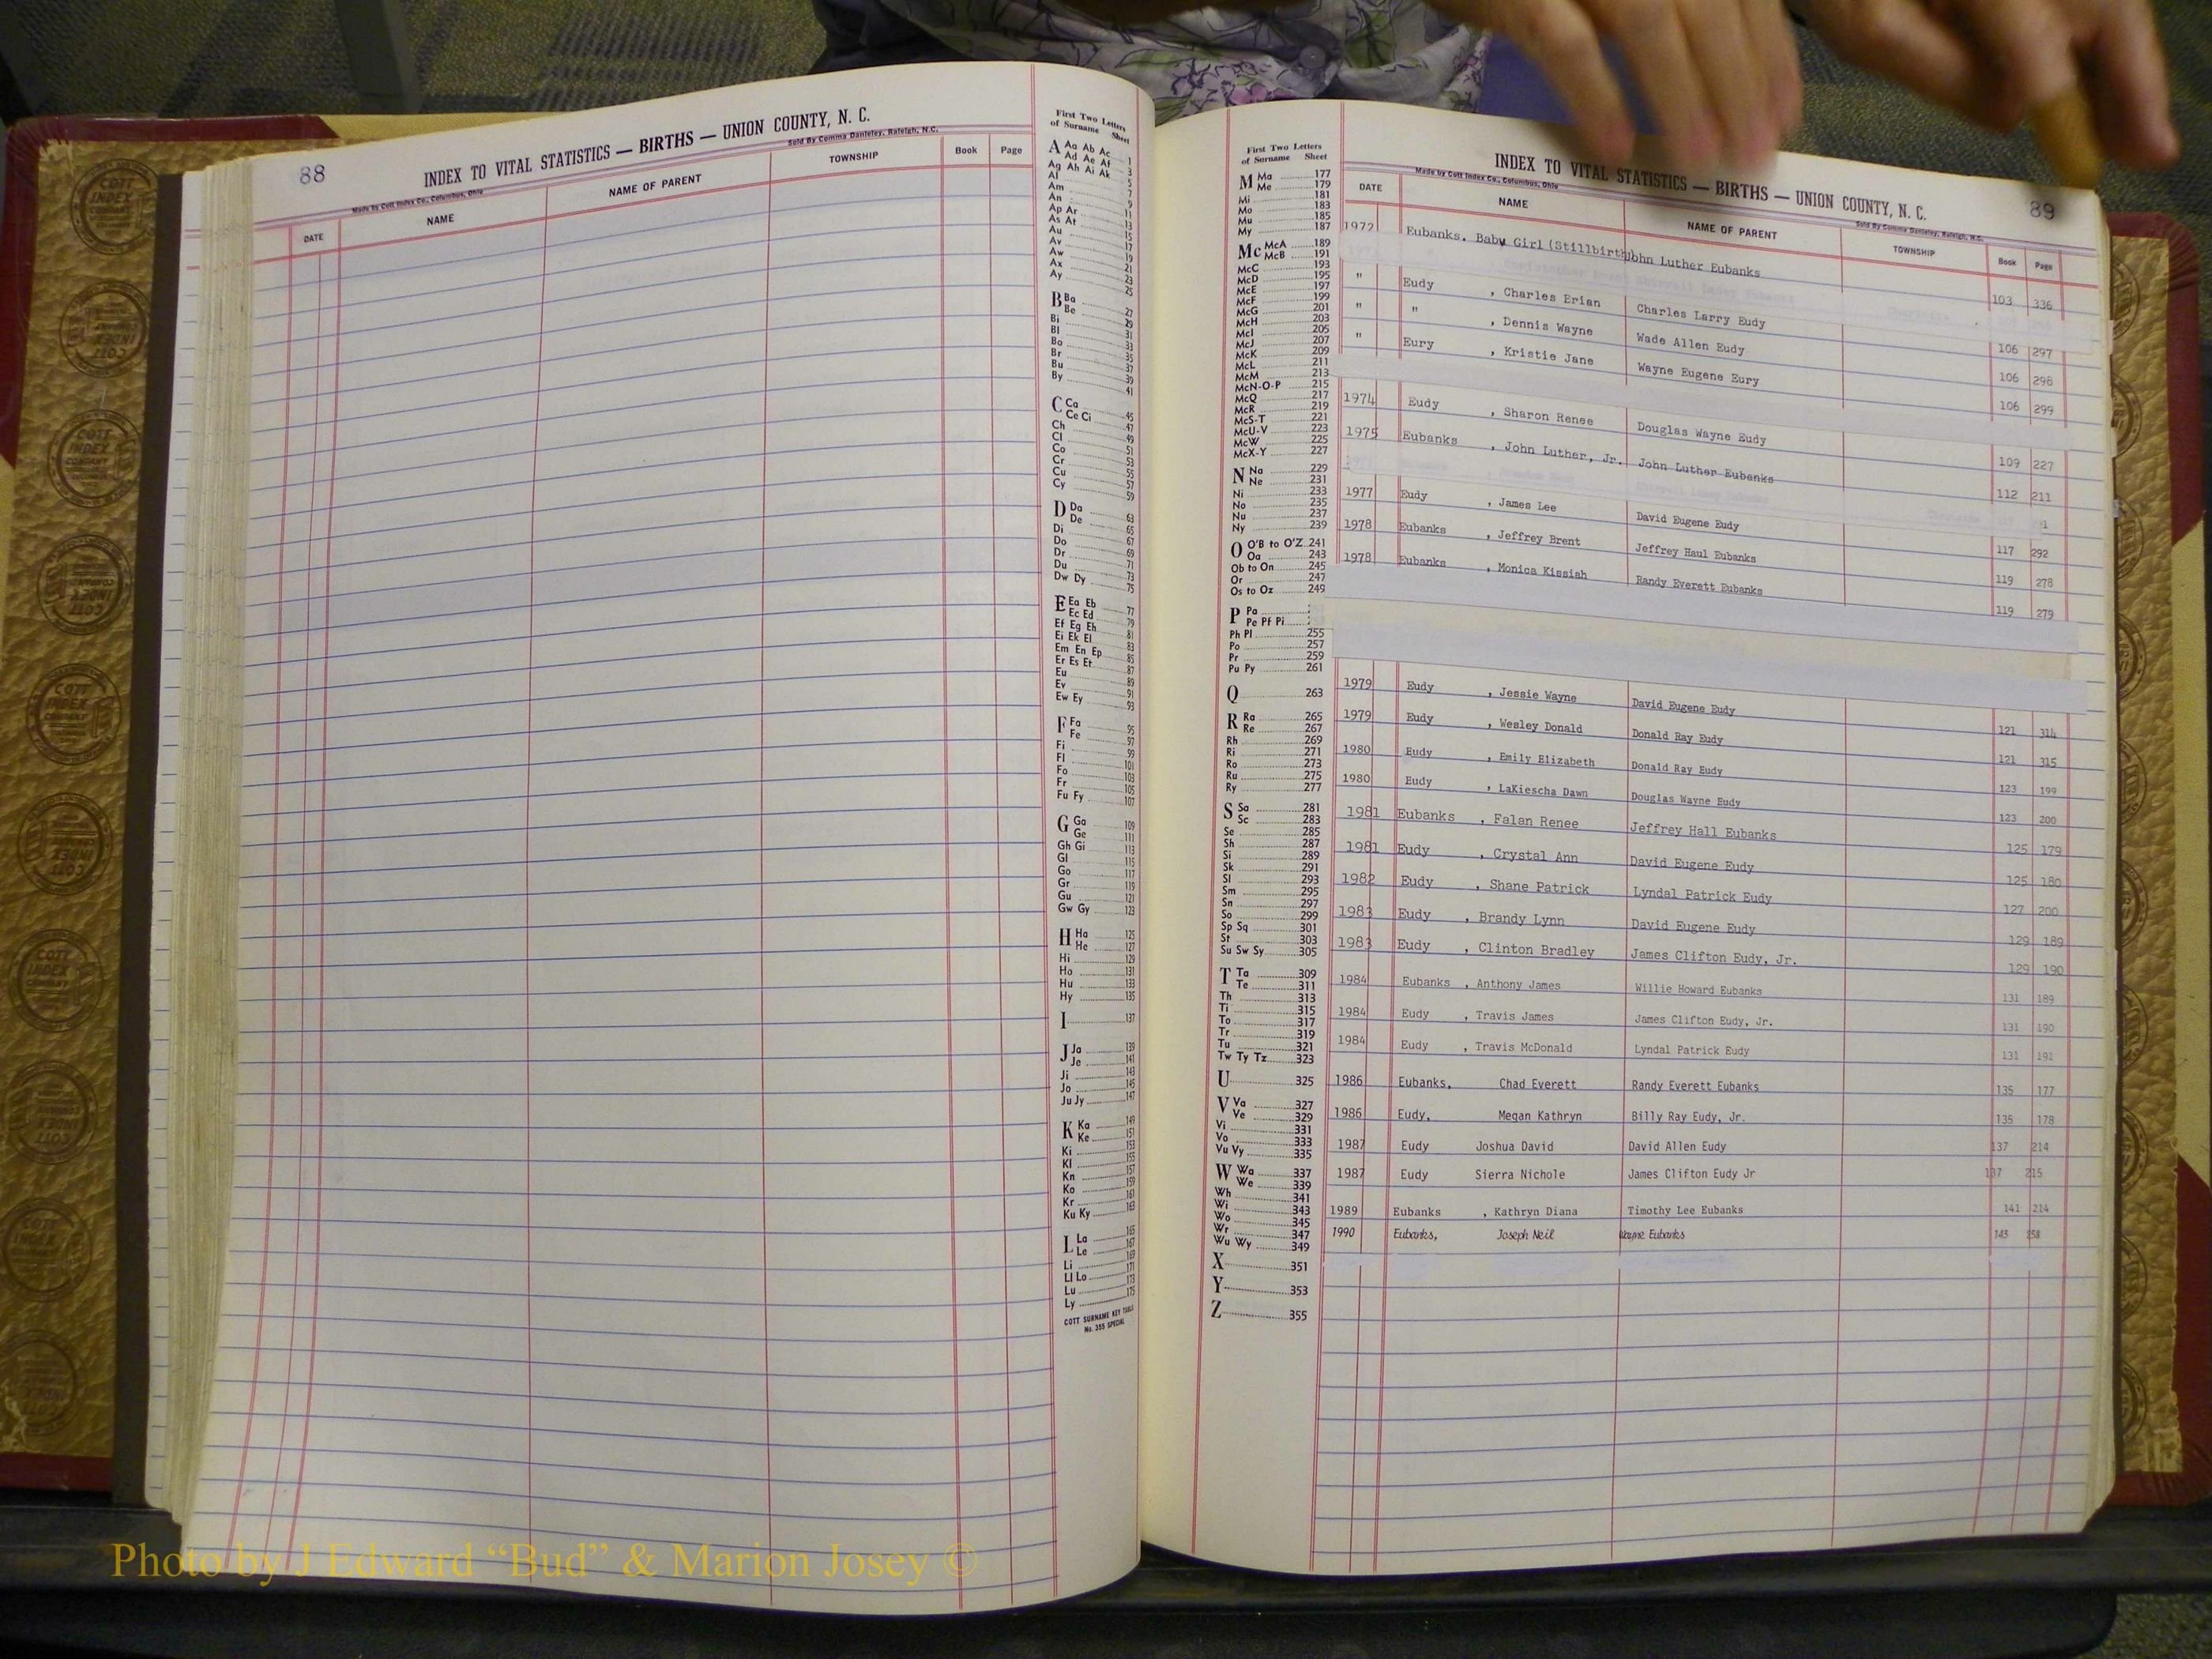 88
INDEX TO VITAL STATISTICS — BIRTHS — UNION COUNTY, N. C.
Made by Cott Index Co., Columbus, Ohio
Sold By Comma Danieley, Raleigh, N.C.
DATE NAME NAME OF PARENT TOWNSHIP Book Page
First Two Letters
of Surname Sheet
A Aa Ab Ac 1
Ad Ae Af 3
Ag Ah Ai Ak 5
Al 7
Am 9
An 11
Ap Ar 13
As At 15
Au 17
Av 19
Aw 21
Ax 23
Ay 25
B Ba 27
Be 29
Bi 31
Bl 33
Bo 35
Br 37
Bu 39
By 41
C Ca 45
Ce Ci 47
Ch 49
Cl 51
Co 53
Cr 55
Cu 57
Cy 59
D Da 63
De 65
Di 67
Do 69
Dr 71
Du 73
Dw Dy 75
E Ea Eb 77
Ec Ed 79
Ef Eg Eh 81
Ei Ek El 83
Em En Ep 85
Er Es Et 87
Eu 89
Ev 91
Ew Ey 93
F Fa 95
Fe 97
Fi 99
Fl 101
Fo 103
Fr 105
Fu Fy 107
G Ga 109
Ge 111
Gh Gi 113
Gl 115
Go 117
Gr 119
Gu 121
Gw Gy 123
H Ha 125
He 127
Hi 129
Ho 131
Hu 133
Hy 135
I 137
J Ja 139
Je 141
Ji 143
Jo 145
Ju Jy 147
K Ka 149
Ke 151
Ki 153
Kl 155
Kn 157
Ko 159
Kr 161
Ku Ky 163
L La 165
Le 167
Li 169
Ll Lo 171
Lu 173
Ly 175
COTT SURNAME KEY TABLE
No. 355 SPECIAL
First Two Letters
of Surname Sheet
M Ma 177
Me 179
Mi 181
Mo 183
Mu 185
My 187
Mc McA 189
McB 191
McC 193
McD 195
McE 197
McF 199
McG 201
McH 203
McI 205
McJ 207
McK 209
McL 211
McM 213
McN-O-P 215
McQ 217
McR 219
McS-T 221
McU-V 223
McW 225
McX-Y 227
N Na 229
Ne 231
Ni 233
No 235
Nu 237
Ny 239
O O'B to O'Z 241
Oa 243
Ob to On 245
Or 247
Os to Oz 249
P Pa
Pe Pf Pi
Ph Pl 255
Po 257
Pr 259
Pu Py 261
Q 263
R Ra 265
Re 267
Rh 269
Ri 271
Ro 273
Ru 275
Ry 277
S Sa 281
Sc 283
Se 285
Sh 287
Si 289
Sk 291
Sl 293
Sm 295
Sn 297
So 299
Sp Sq 301
St 303
Su Sw Sy 305
T Ta 309
Te 311
Th 313
Ti 315
To 317
Tr 319
Tu 321
Tw Ty Tz 323
U 325
V Va 327
Ve 329
Vi 331
Vo 333
Vu Vy 335
W Wa 337
We 339
Wh 341
Wi 343
Wo 345
Wr 347
Wu Wy 349
X 351
Y 353
Z 355
INDEX TO VITAL STATISTICS — BIRTHS — UNION COUNTY, N. C.
89
Made by Cott Index Co., Columbus, Ohio
Sold By Comma Danieley, Raleigh, N.C.
DATE NAME NAME OF PARENT TOWNSHIP Book Page
1972 Eubanks, Baby Girl (Stillbirth) John Luther Eubanks 103 336
" Eudy , Charles Brian Charles Larry Eudy 106 297
" " , Dennis Wayne Wade Allen Eudy 106 298
" Eury , Kristie Jane Wayne Eugene Eury 106 299
1974 Eudy , Sharon Renee Douglas Wayne Eudy 109 227
1975 Eubanks , John Luther, Jr. John Luther Eubanks 112 211
1977 Eudy , James Lee David Eugene Eudy 117 292
1978 Eubanks , Jeffrey Brent Jeffrey Haul Eubanks 119 278
1978 Eubanks , Monica Kissiah Randy Everett Eubanks 119 279
1979 Eudy , Jessie Wayne David Eugene Eudy 121 314
1979 Eudy , Wesley Donald Donald Ray Eudy 121 315
1980 Eudy , Emily Elizabeth Donald Ray Eudy 123 199
1980 Eudy , LaKiescha Dawn Douglas Wayne Eudy 123 200
1981 Eubanks , Falan Renee Jeffrey Hall Eubanks 125 179
1981 Eudy , Crystal Ann David Eugene Eudy 125 180
1982 Eudy , Shane Patrick Lyndal Patrick Eudy 127 200
1983 Eudy , Brandy Lynn David Eugene Eudy 129 189
1983 Eudy , Clinton Bradley James Clifton Eudy, Jr. 129 190
1984 Eubanks , Anthony James Willie Howard Eubanks 131 189
1984 Eudy , Travis James James Clifton Eudy, Jr. 131 190
1984 Eudy , Travis McDonald Lyndal Patrick Eudy 131 191
1986 Eubanks, Chad Everett Randy Everett Eubanks 135 177
1986 Eudy, Megan Kathryn Billy Ray Eudy, Jr. 135 178
1987 Eudy Joshua David David Allen Eudy 137 214
1987 Eudy Sierra Nichole James Clifton Eudy Jr 137 215
1989 Eubanks , Kathryn Diana Timothy Lee Eubanks 141 214
1990 Eubanks, Joseph Neil Wayne Eubanks 143 258
Photo by J Edward “Bud” & Marion Josey ©